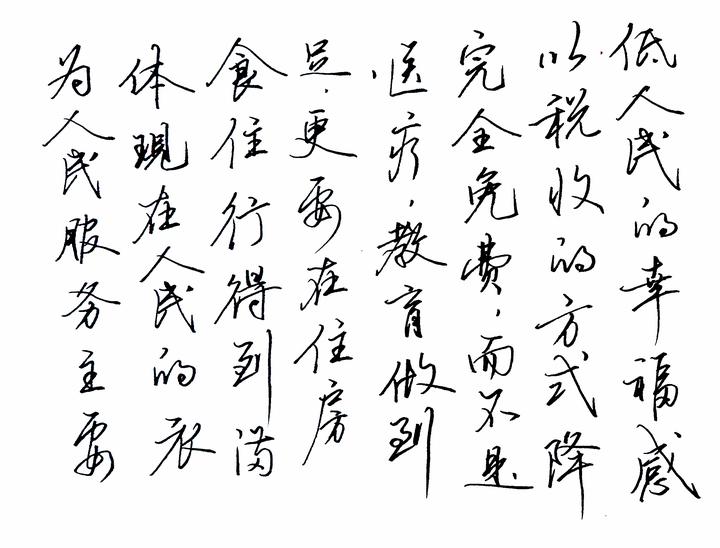 为人民服务主要
体現在人民的衣
食住行得到满
足,更要在住房
、医疗,教育做到
完全免费,而不是
以税收的方式降
低人民的幸福感